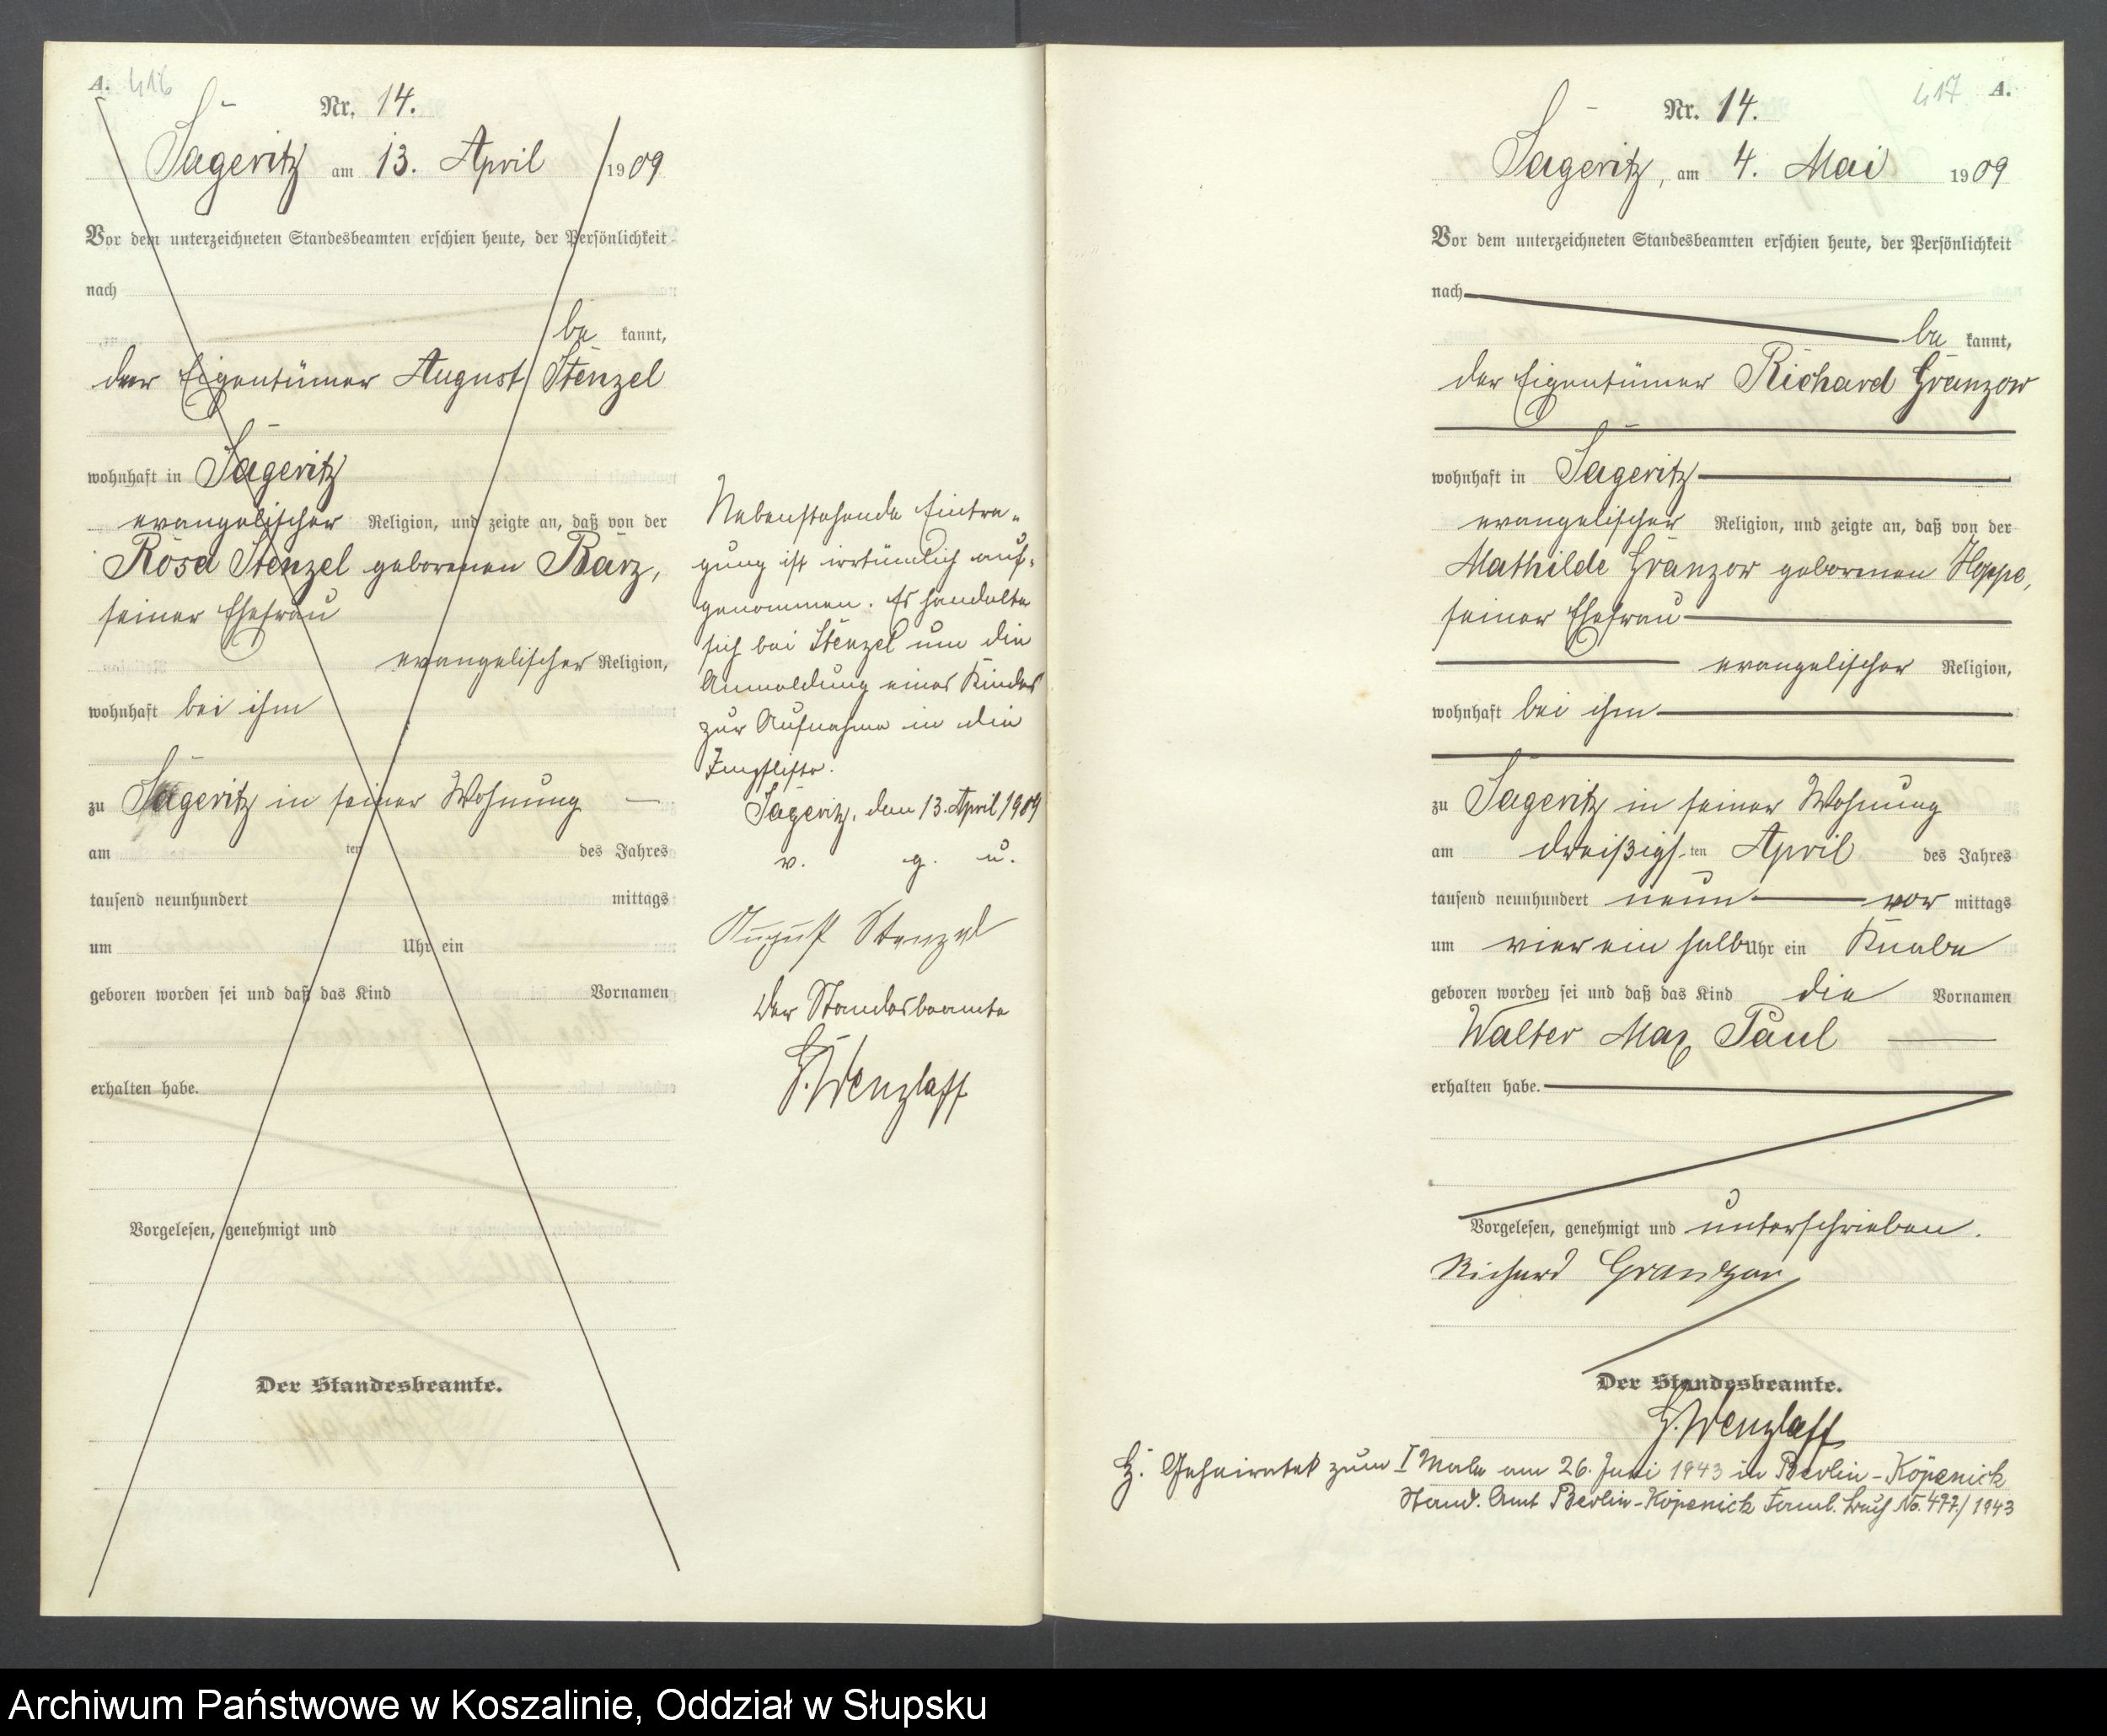 A. 416
Nr. 14.
Sageritz am 13. April 1909
Vor dem unterzeichneten Standesbeamten erschien heute, der Persönlichkeit
nach
be kannt,
der Eigentümer August Stenzel
wohnhaft in Sageritz
evangelischer Religion, und zeigte an, daß von der
Rosa Stenzel geborenen Barz,
seiner Ehefrau
evangelischer Religion,
wohnhaft bei ihm
zu Sageritz in seiner Wohnung
am ten des Jahres
tausend neunhundert mittags
um Uhr ein
geboren worden sei und daß das Kind Vornamen
erhalten habe.
Vorgelesen, genehmigt und
Der Standesbeamte.
Nebenstehende Eintra-
gung ist irrtümlich auf-
genommen. Es handelte
sich bei Stenzel um die
Anmeldung eines Kindes
zur Aufnahme in die
Impfliste.
Sageritz, den 13. April 1909
v. g. u.
August Stenzel
Der Standesbeamte
G. Wenzlaff
417 A.
Nr. 14.
Sageritz, am 4. Mai 1909
Vor dem unterzeichneten Standesbeamten erschien heute, der Persönlichkeit
nach
be kannt,
der Eigentümer Richard Granzow
wohnhaft in Sageritz
evangelischer Religion, und zeigte an, daß von der
Mathilde Granzow geborenen Hoppe,
seiner Ehefrau
evangelischer Religion,
wohnhaft bei ihm
zu Sageritz in seiner Wohnung
am dreißigs ten April des Jahres
tausend neunhundert neun vor mittags
um vier ein halb Uhr ein Knabe
geboren worden sei und daß das Kind die Vornamen
Walter Max Paul
erhalten habe.
Vorgelesen, genehmigt und unterschrieben.
Richard Granzow
Der Standesbeamte.
G. Wenzlaff
Geheiratet zum I Male am 26. Juni 1943 in Berlin-Köpenick
Stand. Amt Berlin-Köpenick Faml. Buch No. 497/1943
Archiwum Państwowe w Koszalinie, Oddział w Słupsku